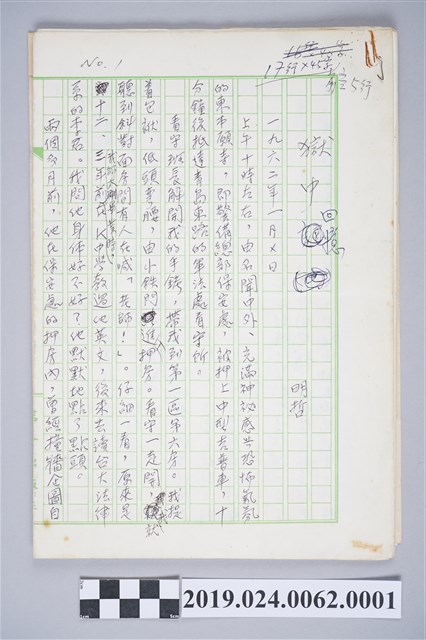 No. 1
17行×45字
空5行
獄中回憶
明哲
一九六二年一月×日
上午十時左右，由名聞中外、充滿神祕感與恐怖氣氛
的東本願寺，即警備總部保安處，被押上中型吉普車，十
分鐘後抵達青島東路的軍法處看守所。
看守班長解開我的手銬，帶我到第一區第六房。我提
著包袱，低頭彎腰，由小鐵門進押房。看守一走開，就
聽到斜對面房間有人在喊「老師！」。仔細一看，原來是
十二、三年前在K中學教過他英文，後來去讀台大法律
系的李君。我問他身体好不好？他默默地點了點頭。
兩個多月前，他在保安處的押房內，曾經撞牆企圖自
2019.024.0062.0001